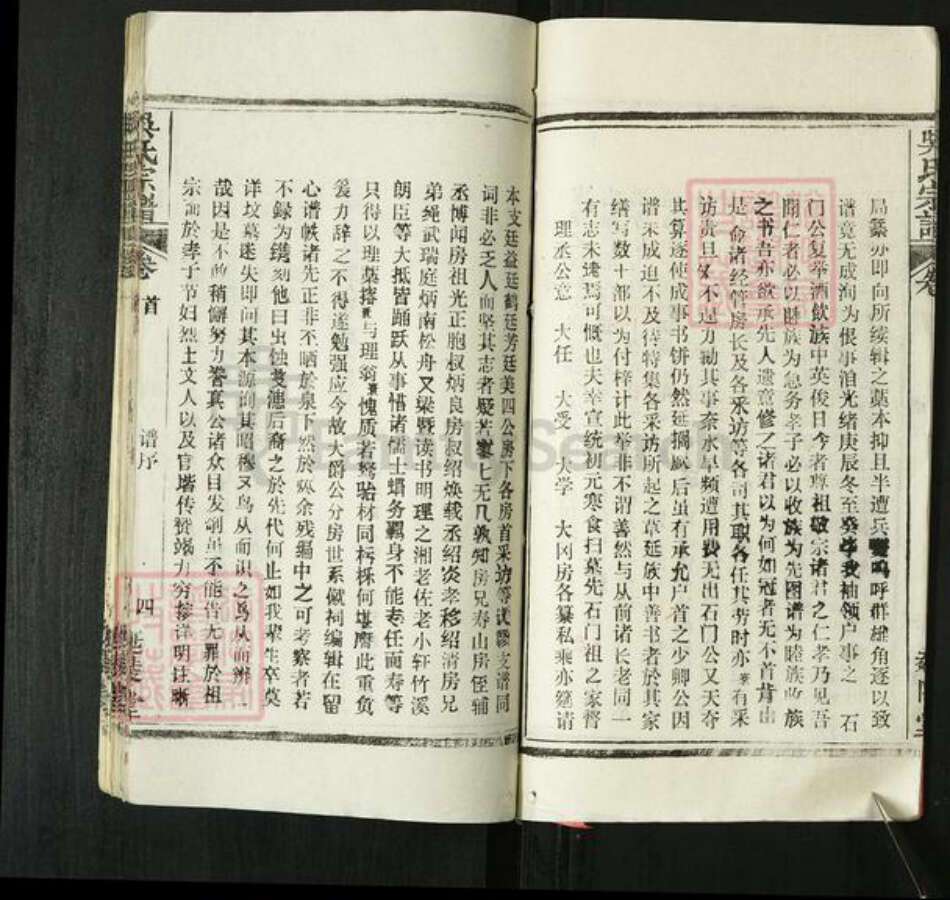 吴氏宗谱
卷
局纂亦即向所续辑之藁本抑且半遭兵燹呜呼群雄角逐以致
谱竟无成洵为恨事洎光绪庚辰冬至癸李我袖领户事之 石
门公复举酒饮族中英俊日今者尊祖敬宗诸君之仁孝乃见吾
闻仁者必以睦族为急务孝子必以收族为先图谱为睦族收族
之书吾亦欲承先人遗意修之诸君以为何如冠者无不首肯由
是命诸经管房长及各承访等各司其职各任其劳时亦有采
访责且安不起力勷其事奈水旱频遭用费无出石门公又天夺
其算遂使成事书饼仍然延搁厥后虽有承允户首之少卿公因
谱未成迫不及待特集各采访所起之草延族中善书者於其家
缮写数十部以为付梓计此举非不谓善然与从前诸长老同一
有志未逮焉可慨也夫幸宣统初元寒食扫墓先石门祖之家督
理丞公意 大任 大受 大学 大冈房各纂私乘亦筵请
本支廷益廷鹤廷芳廷美四公房下各房首采访等议谬支谱同
词非必乏人而坚其志者疑若寥七无几孰知房兄寿山房侄辅
丞博闻房祖光正胞叔炳良房叔绍焕载丞绍炎孝移绍清房兄
弟绳武瑞庭炳南松舟又梁暨读书明理之湘老佐老小轩竹溪
朗臣等大抵皆踊跃从事惜诸儒士蜎务羁身不能专任而寿等
只得以理藁搭与理翁愧质若驽骀材同栎株何堪膺此重负
爰力辞之不得遂勉强应今故大爵公分房世系僦祠编辑在留
心谱帙诸先正非不晒於泉下然於煨余残编中之可考察者若
不録为镌刻他日虫蚀戋漶后裔之於先代何止如我辈生卒莫
详坟墓迷失即问其本源询其昭穆又鸟从而识之鸟从而辨之
哉因是不惮稍懈努力誊真公诸众目发剞虽不能皆无罪於祖
宗而於孝子节妇烈士文人以及官堦传赞竭力穷搜详明注晰
吴氏宗谱
卷
首
谱序
四
延陵堂